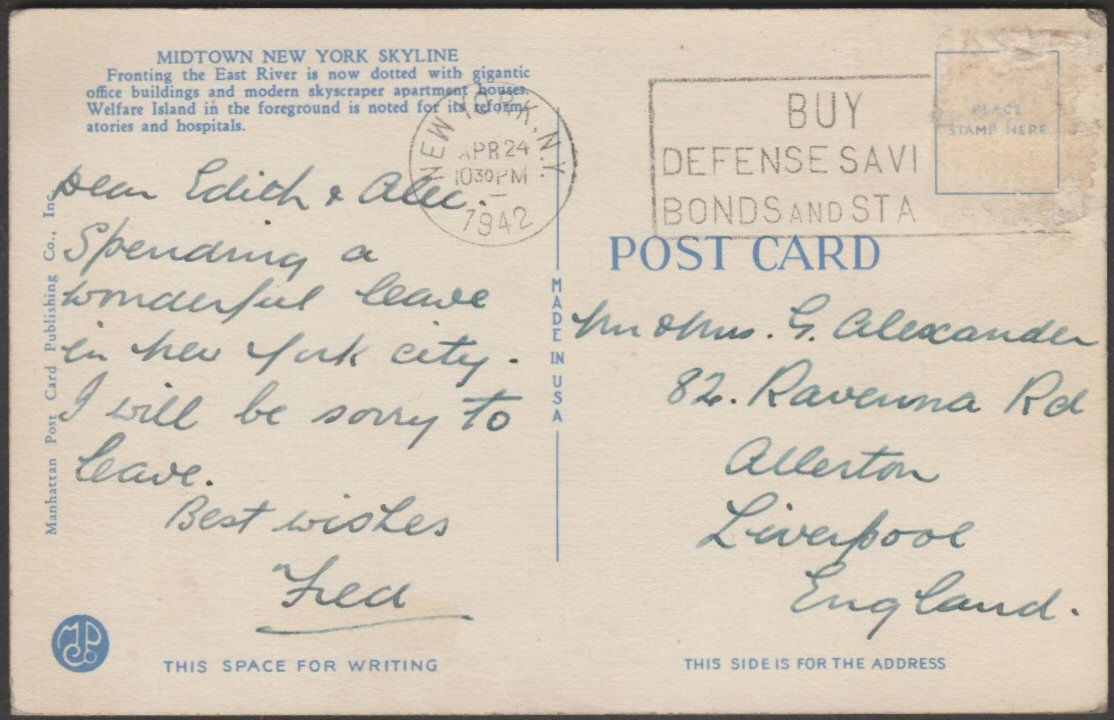 MIDTOWN NEW YORK SKYLINE
Fronting the East River is now dotted with gigantic
office buildings and modern skyscraper apartment houses.
Welfare Island in the foreground is noted for its reform-
atories and hospitals.
NEW YORK, N.Y.
APR 24
10 30 PM
1942
BUY
DEFENSE SAVI
BONDS AND STA
PLACE
STAMP HERE
POST CARD
Dear Edith & Alec.
Spending a
wonderful leave
in New York city.
I will be sorry to
leave.
Best wishes
Fred
Manhattan Post Card Publishing Co., Inc.
MADE IN USA
Mr & Mrs. G. Alexander
82. Ravenna Rd
Allerton
Liverpool
England.
MPCo
THIS SPACE FOR WRITING
THIS SIDE IS FOR THE ADDRESS